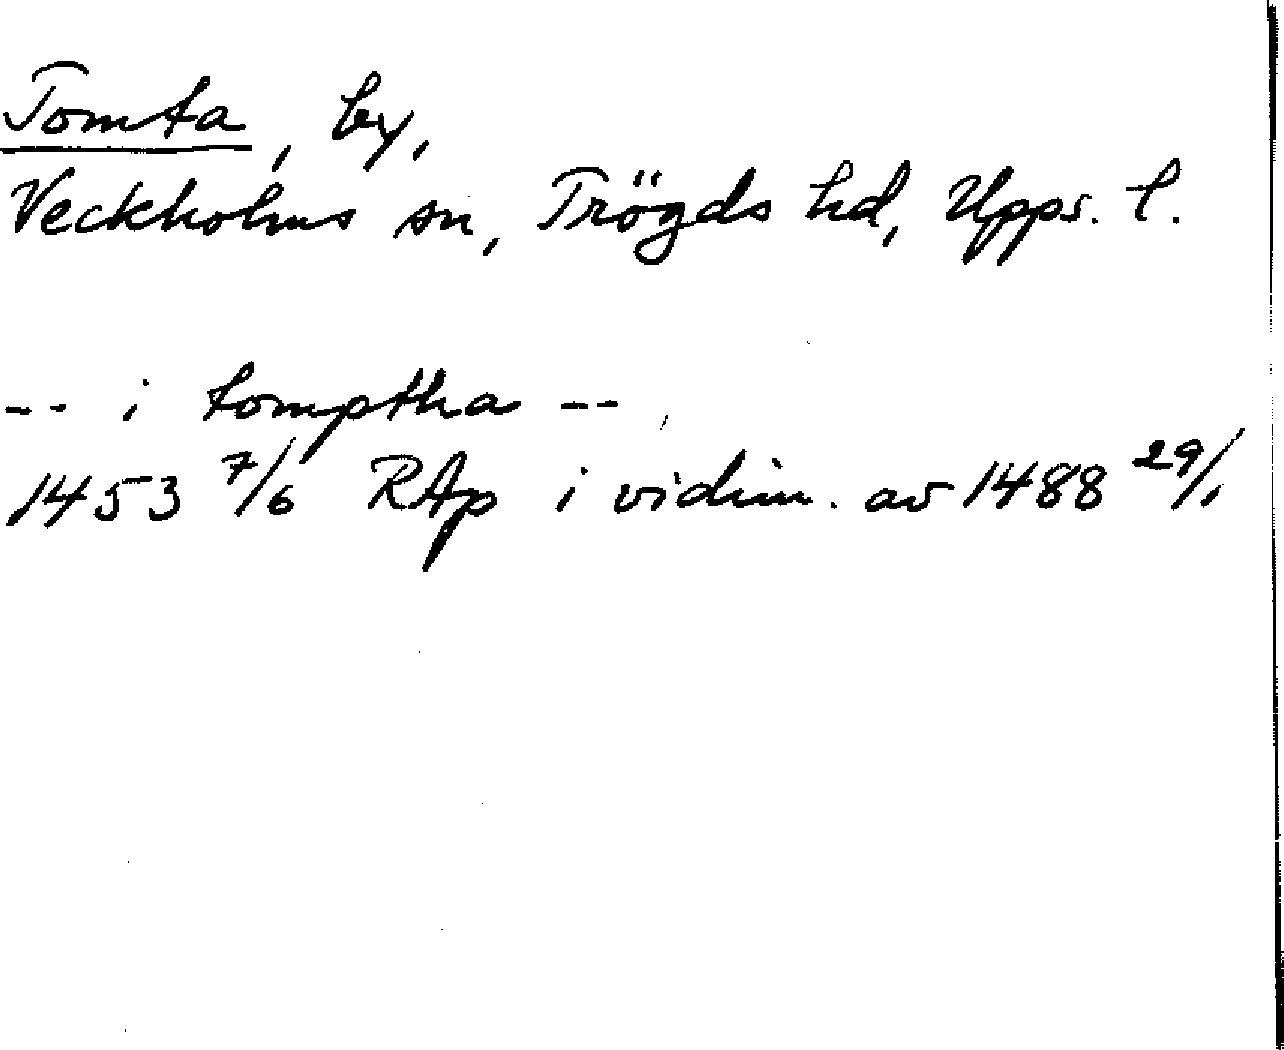 Tomta, by,
Veckholms sn, Trögds hd, Upps. l.
-- i tomptha --,
1453 7/6 RAp i vidim. av 1488 29/1